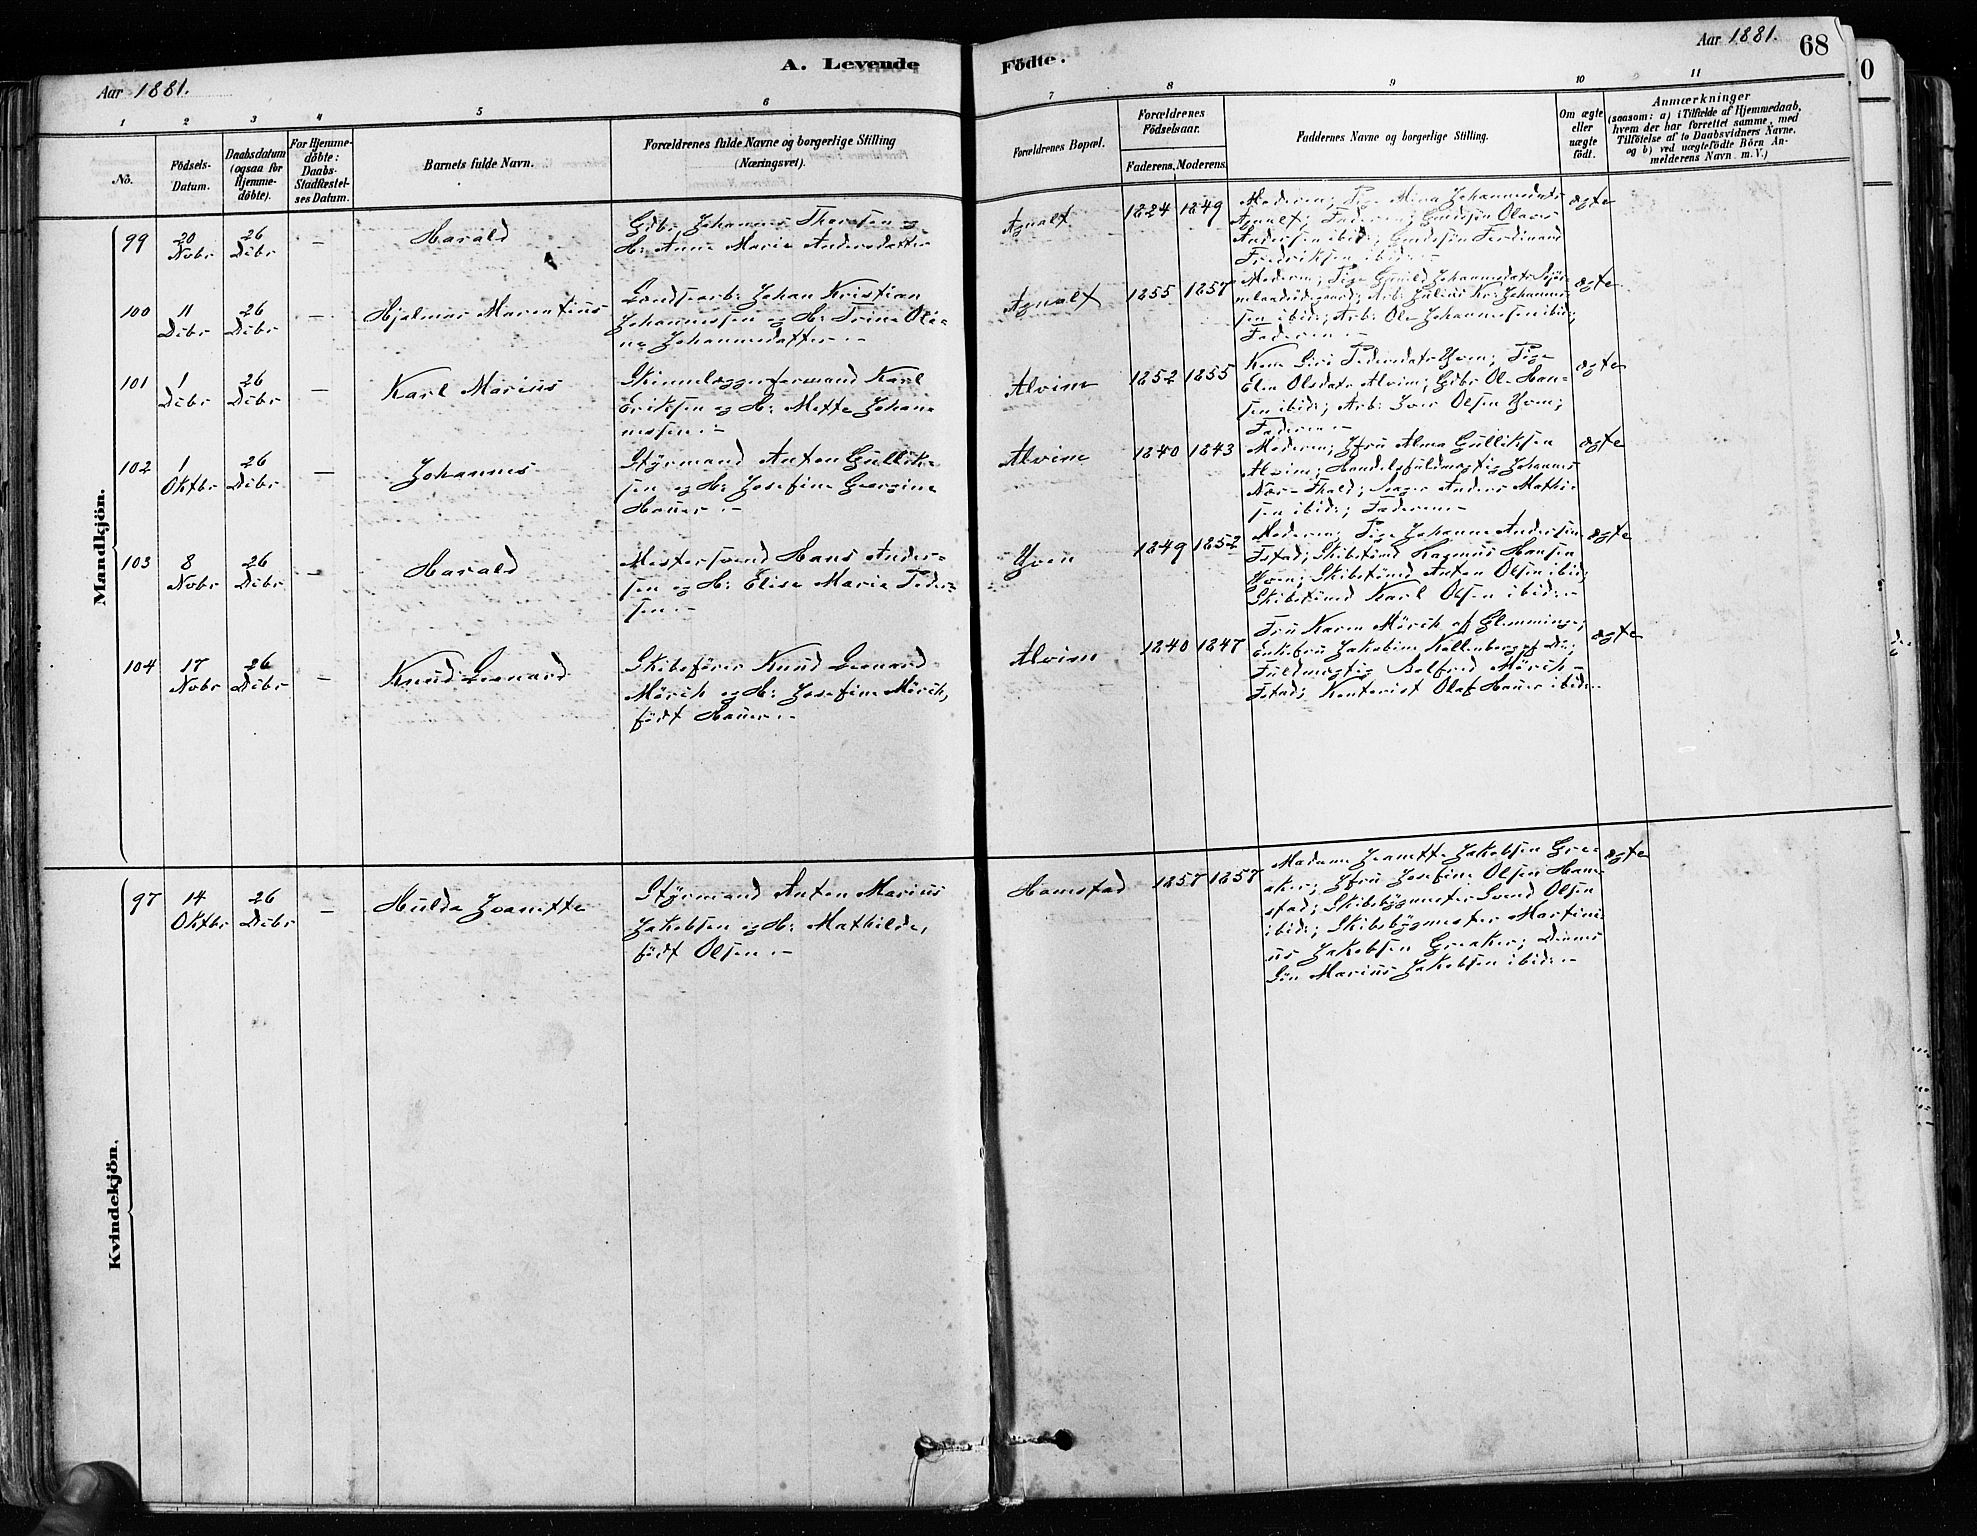 Aar 1881.
A. Levende
Födte.
Aar 1881.
68
1 2 3 4 5 6 7 8 9 10 11
No.
Födsels-
Datum.
Daabsdatum
(ogsaa for
Hjemme-
döbte).
For Hjemme-
döbte:
Daabs-
Stadfæstel-
ses Datum.
Barnets fulde Navn.
Forældrenes fulde Navne og borgerlige Stilling
(Næringsvei).
Forældrenes Bopæl.
Forældrenes
Födselsaar.
Faderens. Moderens.
Faddernes Navne og borgerlige Stilling.
Om ægte
eller
uægte
födt.
Anmærkninger
(saasom: a) i Tilfælde af Hjemmedaab,
hvem der har forrettet samme, med
Tilföielse af to Daabsvidners Navne,
og b) ved uægtefödte Börn An-
melderens Navn m. V.)
Mandkjön.
99
20
Novbr
26
Decbr
—
Harald
Gdbr. Johannes Thoresen og
H: Anne Marie Andersdatter
Agnalt
1824 1849
Moderen; Pige Mina Johannesdatr
Agnalt; Faderen; Gaardsøn Olaus
Andersen ibid:; Gaardsøn Ferdinand
Fredriksen ibid:—
ægte
100
11
Decbr
26
Decbr
—
Hjalmar Marentius
Landarb: Johan Kristian
Johannessen og H: Trine Oli-
ne Johannesdatter.—
Agnalt
1855 1857
Moderen; Pige Gunild Johannesdatr
Arb: Julius Kr: Johannes-
sen ibid:; Arb: Ole Johannessen ibid:;
Faderen.—
ægte
101
1
Decbr
26
Decbr
—
Karl Marius
Skinnelæggerformand Karl
Eriksen og H: Mette Johan-
nessen.—
Alvim
1852 1855
Kone Siri Pedersdatr Yven; Pige
Elen Olsdatr Alvim; Gdbr Ole Han-
sen ibid:; Arb: Iver Olsen Yven;
Faderen.—
ægte
102
1
Oktbr
26
Decbr
—
Johannes
Styrmand Anton Gullik-
sen og H: Josefine Georgine
Hauer.—
Alvim
1840 1843
Moderen; Jfru Alma Gulliksen
Alvim; Handelsfuldmægtig Johannes
Nær - Fhald; Anders Mathi-
sen ibid:; Faderen.—
ægte
103
8
Novbr
26
Decbr
—
Harald
Mestersvend Hans Ander-
sen og H: Elise Marie Peder-
sen.—
Yven
1849 1852
Moderen; Pige Johanne Andersen
Fstad; Skibstömd Rasmus Hansen
Yven; Skibstömd Anton Olsen ibid:;
Skibstömd Karl Olsen ibid:.—
ægte
104
17
Novbr
26
Decbr
—
Knud Leonard
Skibsförer Knud Leonard
Mörch og H: Josefine Mörch,
födt Hauer.—
Alvim
1840 1847
Fru Karen Mörch af Glemminge;
Enkefru Jakobine Kallenberg af Do;
Fuldmægtig Bolfred Mörch -
Fstad; Kontorist Olaf Hauer ibid:.—
ægte
Kvindekjön.
97
14
Oktbr
26
Decbr
—
Hulda Jeanette
Styrmand Anton Marius
Jakobsen og H: Mathilde,
födt Olsen.—
Hannestad
1857 1857
Madame Jeanette Jakobsen Gre-
aker; Jfru Josefine Olsen Hane-
stad; Skibsbygmester Svend Olsen
ibid:; Skibsbygmester Martini-
us Jakobsen Greaker; Dennes
Sön Marius Jakobsen ibid:.—
ægte